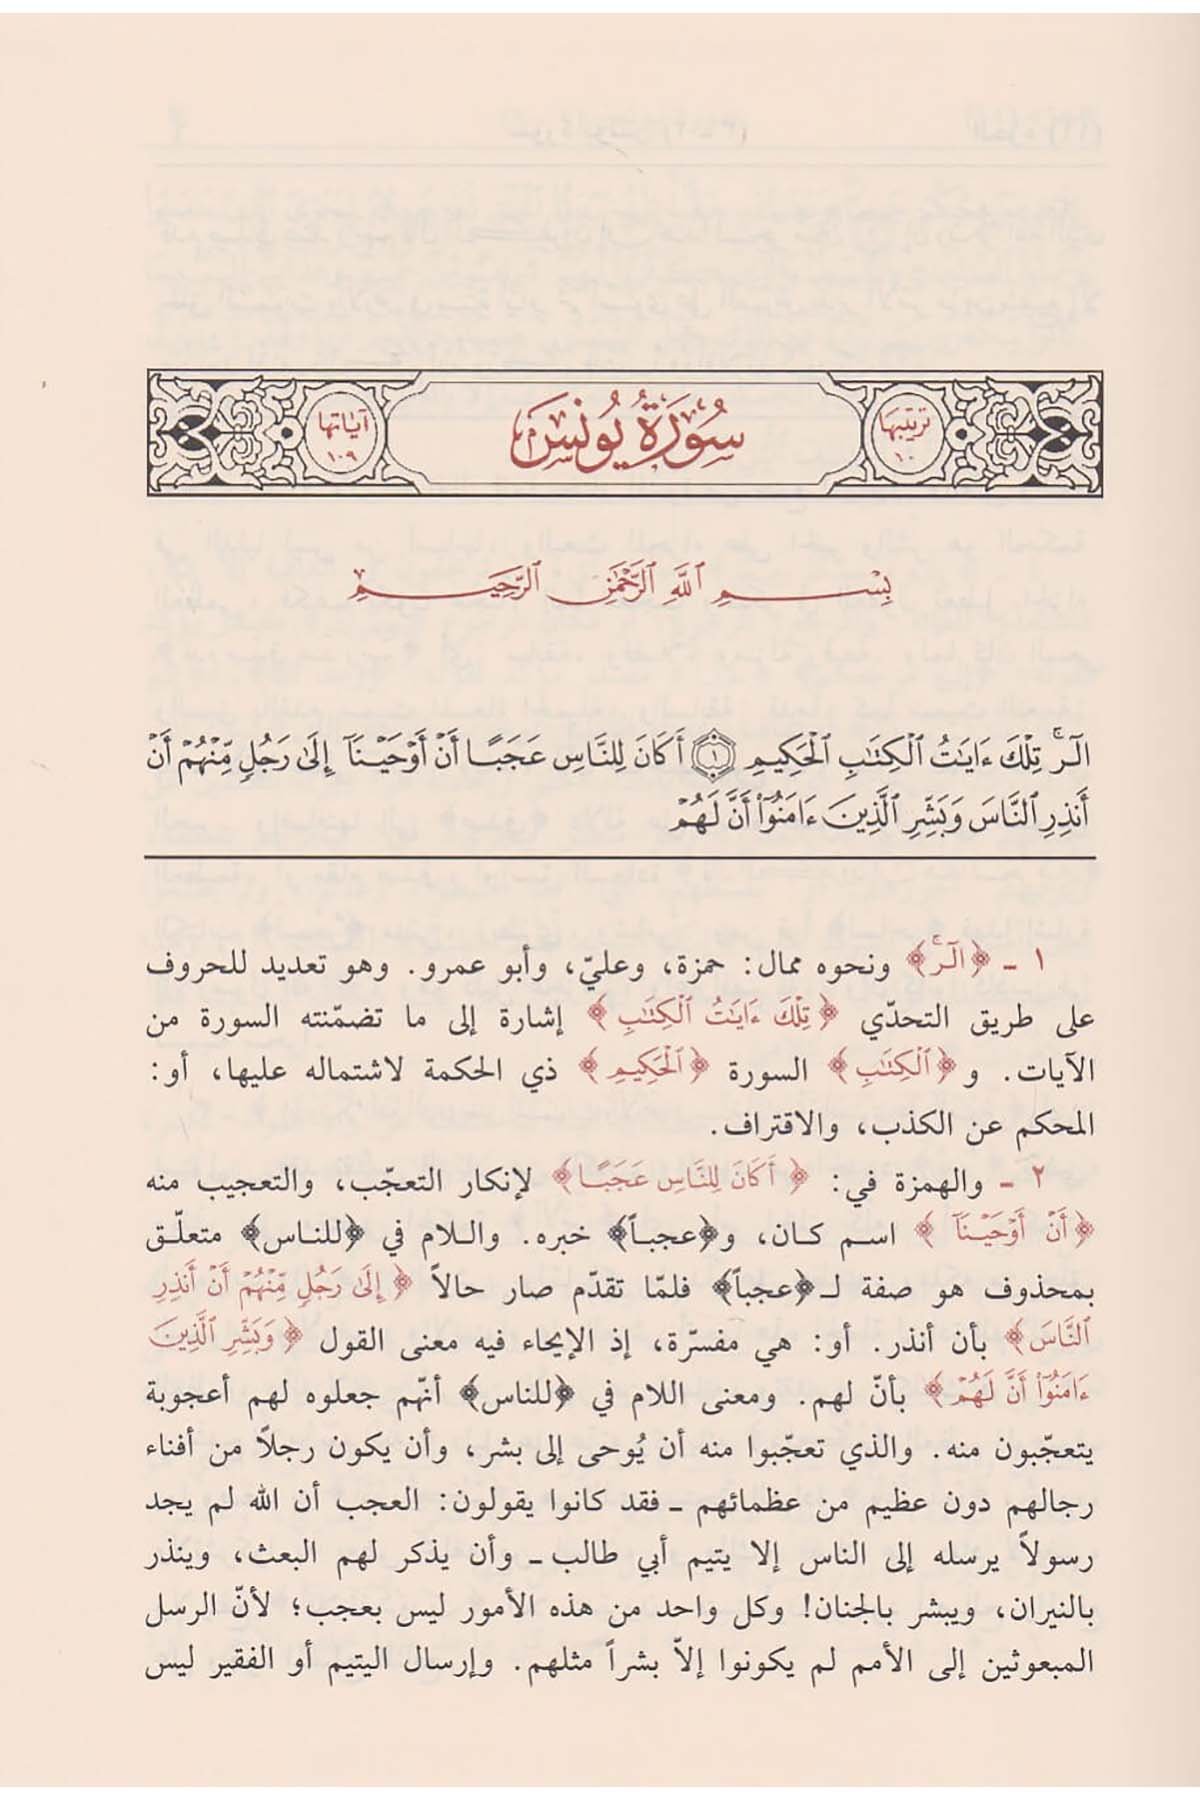 ترتيبها
١٠
سُورَةُ يُونُسَ
آياتها
١٠٩
بِسْمِ ٱللَّهِ ٱلرَّحْمَٰنِ ٱلرَّحِيمِ
الٓرۚ تِلْكَ ءَايَٰتُ ٱلْكِتَٰبِ ٱلْحَكِيمِ ١ أَكَانَ لِلنَّاسِ عَجَبًا أَنْ أَوْحَيْنَآ إِلَىٰ رَجُلٍ مِّنْهُمْ أَنْ
أَنذِرِ ٱلنَّاسَ وَبَشِّرِ ٱلَّذِينَ ءَامَنُوٓا۟ أَنَّ لَهُمْ
١ - ﴿الٓرۚ﴾ ونحوه ممال: حمزة، وعليّ، وأبو عمرو. وهو تعديد للحروف
على طريق التحدّي ﴿تِلْكَ ءَايَٰتُ ٱلْكِتَٰبِ﴾ إشارة إلى ما تضمّنته السورة من
الآيات. و﴿ٱلْكِتَٰبِ﴾ السورة ﴿ٱلْحَكِيمِ﴾ ذي الحكمة لاشتماله عليها، أو:
المحكم عن الكذب، والاقتراف.
٢ - والهمزة في: ﴿أَكَانَ لِلنَّاسِ عَجَبًا﴾ لإنكار التعجّب، والتعجيب منه
﴿أَنْ أَوْحَيْنَآ﴾ اسم كان، و﴿عجباً﴾ خبره. واللام في ﴿للناس﴾ متعلّق
بمحذوف هو صفة لـ﴿عجباً﴾ فلمّا تقدّم صار حالاً ﴿إِلَىٰ رَجُلٍ مِّنْهُمْ أَنْ أَنذِرِ
ٱلنَّاسَ﴾ بأن أنذر. أو: هي مفسرّة، إذ الإيحاء فيه معنى القول ﴿وَبَشِّرِ ٱلَّذِينَ
ءَامَنُوٓا۟ أَنَّ لَهُمْ﴾ بأنّ لهم. ومعنى اللام في ﴿للناس﴾ أنهّم جعلوه لهم أعجوبة
يتعجّبون منه. والذي تعجّبوا منه أن يُوحى إلى بشر، وأن يكون رجلاً من أفناء
رجالهم دون عظيم من عظمائهم - فقد كانوا يقولون: العجب أن الله لم يجد
رسولاً يرسله إلى الناس إلا يتيم أبي طالب - وأن يذكر لهم البعث، وينذر
بالنيران، ويبشر بالجنان! وكل واحد من هذه الأمور ليس بعجب؛ لأنّ الرسل
المبعوثين إلى الأمم لم يكونوا إلاّ بشراً مثلهم. وإرسال اليتيم أو الفقير ليس